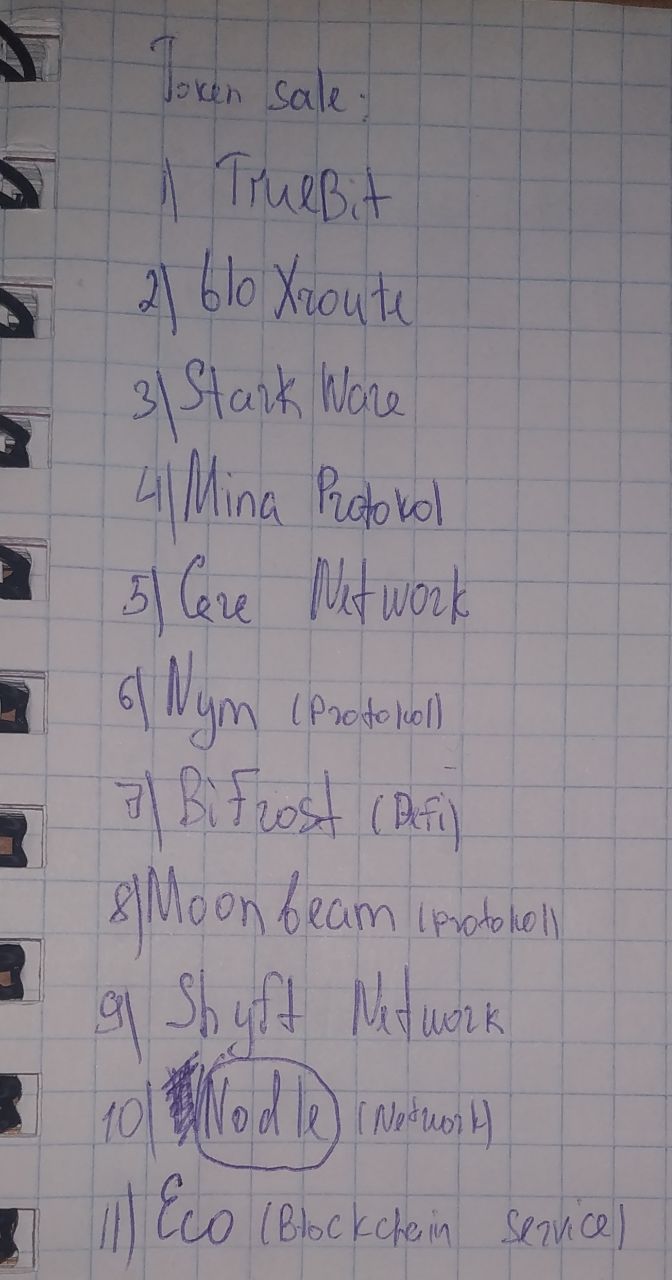 Token sale:
1) TrueBit
2) bloXroute
3) Stark Ware
4) Mina Protokol
5) Cere Network
6) Nym (Protokol)
7) BiFrost (Defi)
8) Moonbeam (protokol)
9) Shyft Network
10) Nodle (Network)
11) Eco (Blockchein Service)